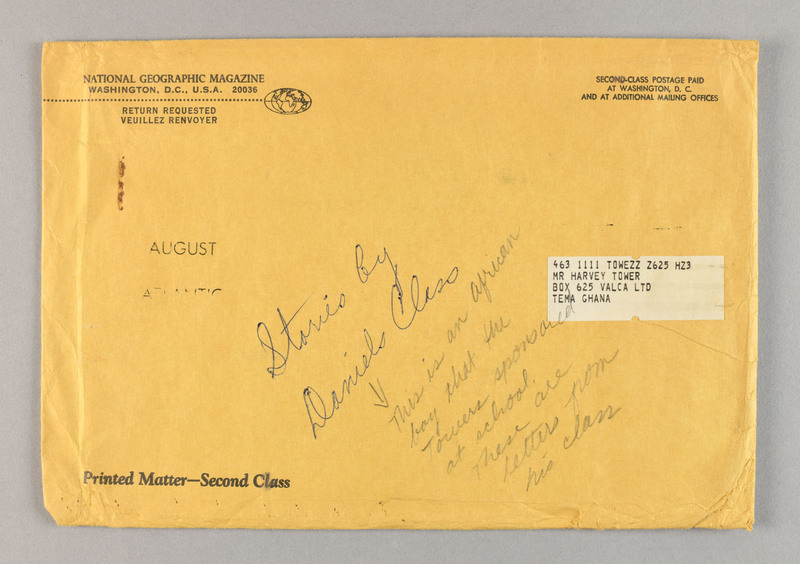 NATIONAL GEOGRAPHIC MAGAZINE
WASHINGTON, D.C., U.S.A. 20036
RETURN REQUESTED
VEUILLEZ RENVOYER
SECOND-CLASS POSTAGE PAID
AT WASHINGTON, D. C.
AND AT ADDITIONAL MAILING OFFICES
AUGUST
ATLANTIC
463 1111 TOWEZZ Z625 HZ3
MR HARVEY TOWER
BOX 625 VALCA LTD
TEMA GHANA
Stories by
Daniels Class
This is an african
boy that the
Towers sponsored
at school.
These are
letters from
his class
Printed Matter—Second Class